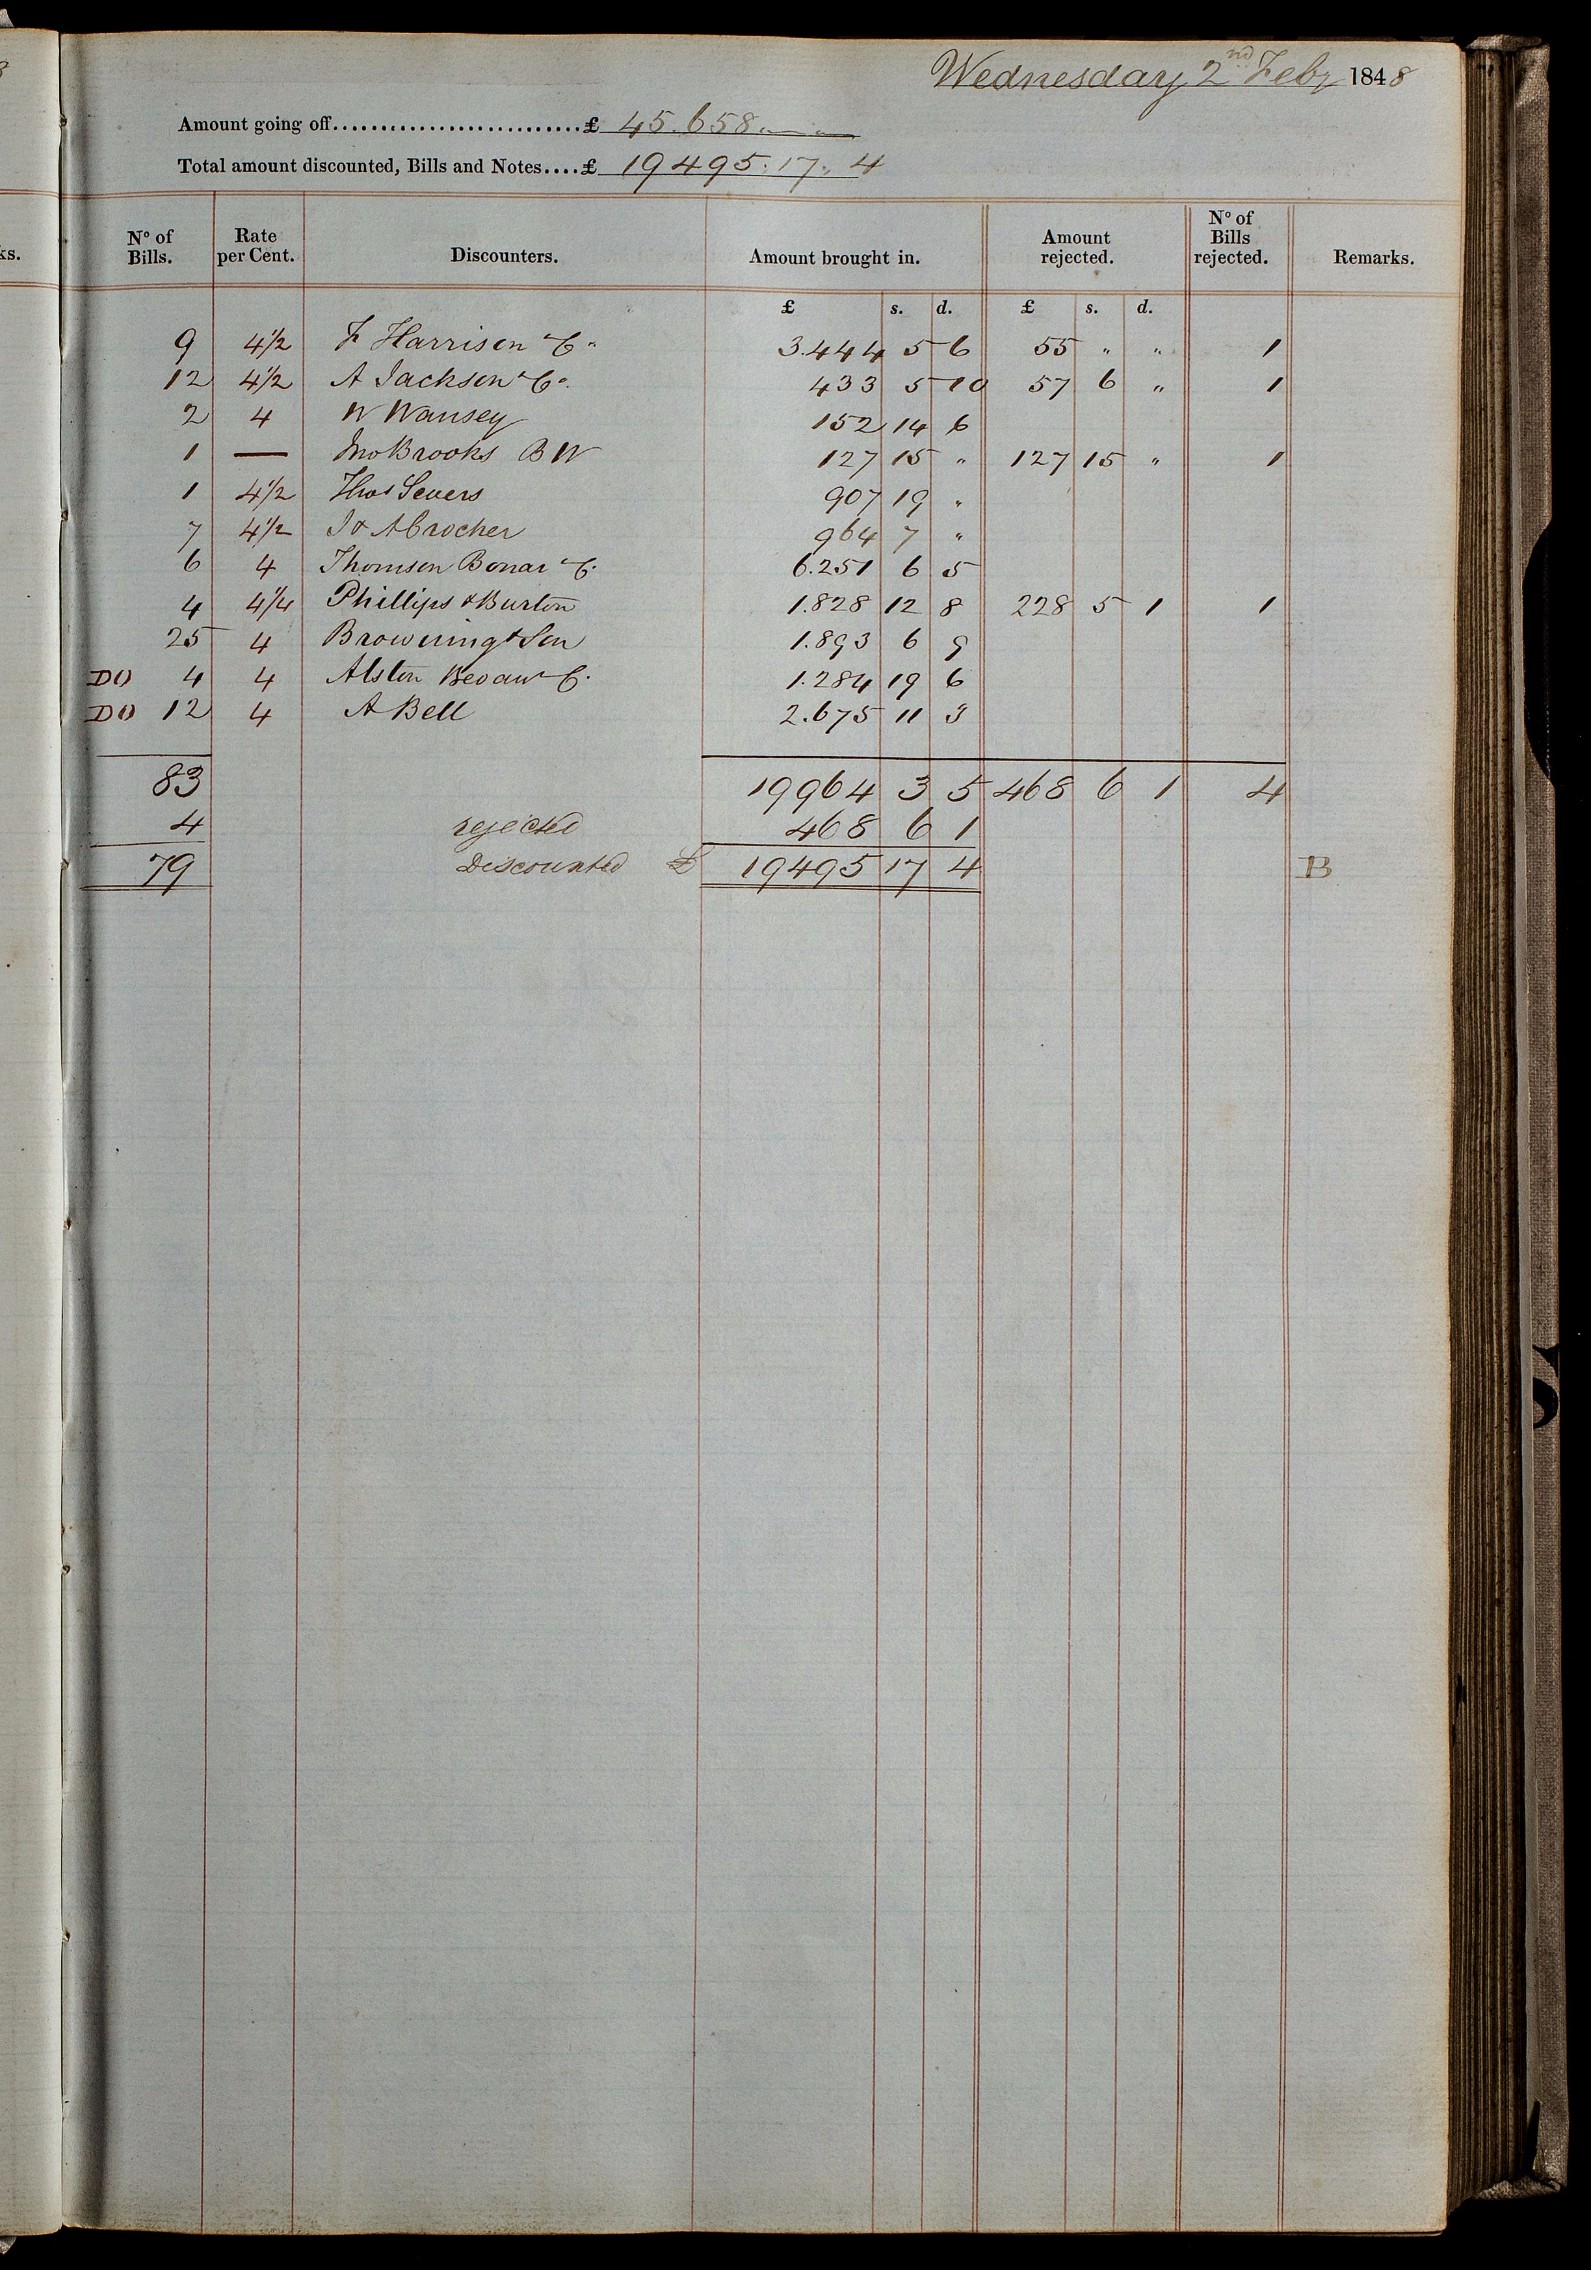 Wednesday 2nd Feby 1848
Amount going off........................£ 45.658 " "
Total amount discounted, Bills and Notes....£ 19495.17.4
No of Bills. Rate per Cent. Discounters. Amount brought in. Amount rejected. No of Bills rejected. Remarks.
£ s. d. £ s. d.
9 4½ F Harrison & Co 3.444 5 6 55 " " 1
12 4½ A Jackson & Co 433 5 10 57 6 " 1
2 4 W Wansey 152 14 6
1 — Jno Brooks B W 127 15 " 127 15 " 1
1 4½ Thos Severs 907 19 "
7 4½ J & A Crocker 964 7 "
6 4 Thomson Bonar & Co 6.251 6 5
4 4¼ Phillips & Burton 1.828 12 8 228 5 1 1
25 4 Browning & Son 1.893 6 9
DO 4 4 Alston & Co 1.284 19 6
DO 12 4 A Bell 2.675 11 3
83 19964 3 5 468 6 1 4
4 rejected 468 6 1
79 Discounted £ 19495 17 4 B